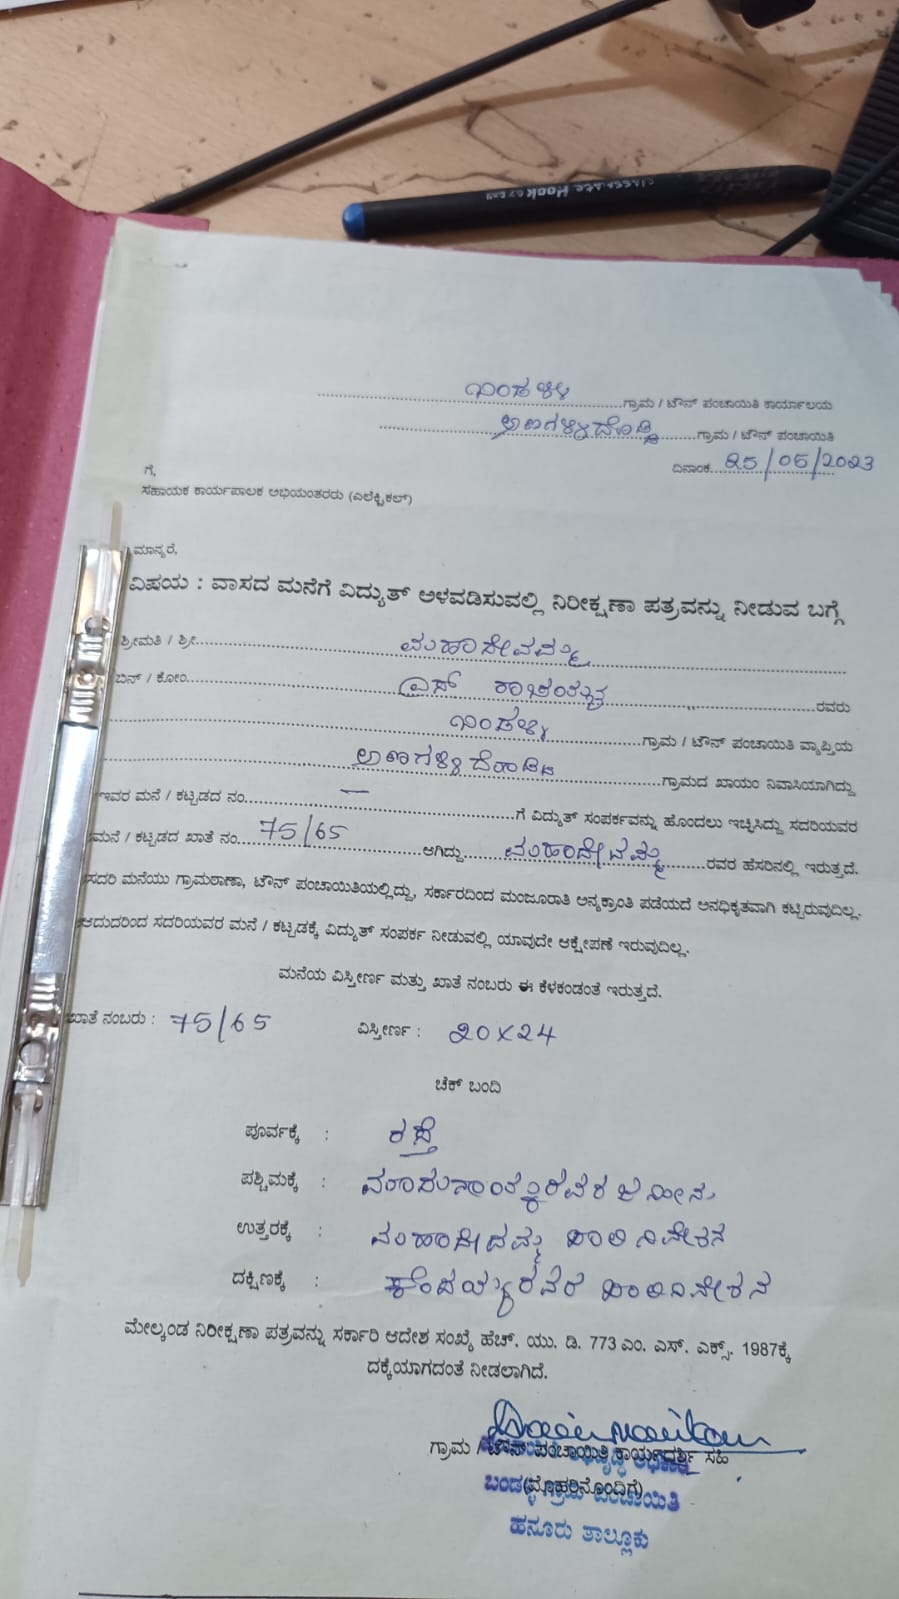 ಬಂಡಳ್ಳಿ ಗ್ರಾಮ / ಟೌನ್ ಪಂಚಾಯಿತಿ ಕಾರ್ಯಾಲಯ
ಅಣಗಳ್ಳಿದೊಡ್ಡಿ ಗ್ರಾಮ / ಟೌನ್ ಪಂಚಾಯಿತಿ
ದಿನಾಂಕ 25/05/2023
ಗೆ,
ಸಹಾಯಕ ಕಾರ್ಯಪಾಲಕ ಅಭಿಯಂತರರು (ಎಲೆಕ್ಟ್ರಿಕಲ್)
ಮಾನ್ಯರೆ,
ವಿಷಯ : ವಾಸದ ಮನೆಗೆ ವಿದ್ಯುತ್ ಅಳವಡಿಸುವಲ್ಲಿ ನಿರೀಕ್ಷಣಾ ಪತ್ರವನ್ನು ನೀಡುವ ಬಗ್ಗೆ
ಶ್ರೀಮತಿ / ಶ್ರೀ ಮಹಾದೇವಮ್ಮ
ಬಿನ್ / ಕೋಂ ಎಸ್ ರವರು
ಬಂಡಳ್ಳಿ ಗ್ರಾಮ / ಟೌನ್ ಪಂಚಾಯಿತಿ ವ್ಯಾಪ್ತಿಯ
ಅಣಗಳ್ಳಿದೊಡ್ಡಿ ಗ್ರಾಮದ ಖಾಯಂ ನಿವಾಸಿಯಾಗಿದ್ದು
ಇವರ ಮನೆ / ಕಟ್ಟಡದ ನಂ. — ಗೆ ವಿದ್ಯುತ್ ಸಂಪರ್ಕವನ್ನು ಹೊಂದಲು ಇಚ್ಛಿಸಿದ್ದು ಸದರಿಯವರ
ಮನೆ / ಕಟ್ಟಡದ ಖಾತೆ ನಂ. 75/65 ಆಗಿದ್ದು ಮಹಾದೇವಮ್ಮ ರವರ ಹೆಸರಿನಲ್ಲಿ ಇರುತ್ತದೆ.
ಸದರಿ ಮನೆಯು ಗ್ರಾಮಠಾಣಾ, ಟೌನ್ ಪಂಚಾಯಿತಿಯಲ್ಲಿದ್ದು, ಸರ್ಕಾರದಿಂದ ಮಂಜೂರಾತಿ ಅನ್ಯಕ್ರಾಂತಿ ಪಡೆಯದೆ ಅನಧಿಕೃತವಾಗಿ ಕಟ್ಟಿರುವುದಿಲ್ಲ.
ಆದುದರಿಂದ ಸದರಿಯವರ ಮನೆ / ಕಟ್ಟಡಕ್ಕೆ ವಿದ್ಯುತ್ ಸಂಪರ್ಕ ನೀಡುವಲ್ಲಿ ಯಾವುದೇ ಆಕ್ಷೇಪಣೆ ಇರುವುದಿಲ್ಲ.
ಮನೆಯ ವಿಸ್ತೀರ್ಣ ಮತ್ತು ಖಾತೆ ನಂಬರು ಈ ಕೆಳಕಂಡಂತೆ ಇರುತ್ತದೆ.
ಖಾತೆ ನಂಬರು : 75/65 ವಿಸ್ತೀರ್ಣ : 20x24
ಚೆಕ್ ಬಂದಿ
ಪೂರ್ವಕ್ಕೆ : ರಸ್ತೆ
ಪಶ್ಚಿಮಕ್ಕೆ :
ಉತ್ತರಕ್ಕೆ : ಮಹಾದೇವಮ್ಮ ಖಾಲಿ ನಿವೇಶನ
ದಕ್ಷಿಣಕ್ಕೆ : ಖಾಲಿ ನಿವೇಶನ
ಮೇಲ್ಕಂಡ ನಿರೀಕ್ಷಣಾ ಪತ್ರವನ್ನು ಸರ್ಕಾರಿ ಆದೇಶ ಸಂಖ್ಯೆ ಹೆಚ್. ಯು. ಡಿ. 773 ಎಂ. ಎಸ್. ಎಕ್ಸ್. 1987ಕ್ಕೆ
ದಕ್ಕೆಯಾಗದಂತೆ ನೀಡಲಾಗಿದೆ.
ಗ್ರಾಮ / ಟೌನ್ ಪಂಚಾಯಿತಿ ಕಾರ್ಯದರ್ಶಿ ಸಹಿ
(ಮೊಹರಿನೊಂದಿಗೆ)
ಹನೂರು ತಾಲ್ಲೂಕು